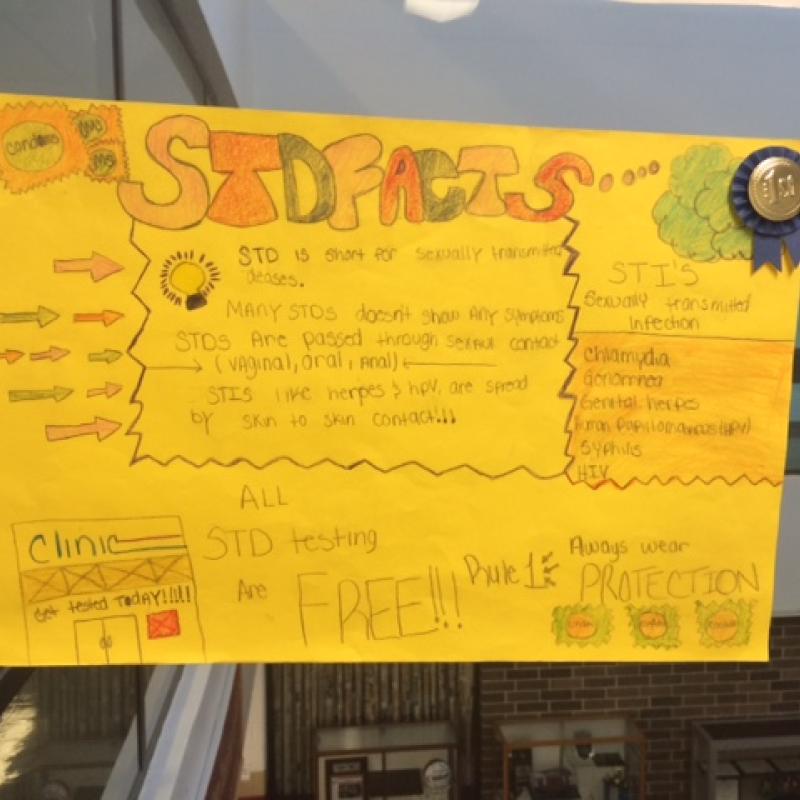 condoms
STD FACTS....
1st
STD is short for sexually transmitted
deases.
MANY STDs doesn't show Any symptoms
STDS Are passed through sexaul contact
(vaginal, oral, Anal)
STIS like herpes & hpv, are spread
by skin to skin contact!!!
STI'S
Sexually transmitted
Infection
Chlamydia
Genital herpes
Syphilis
HIV
ALL
STD testing
Are FREE!!!
Clinic
Get tested TODAY!!!!!
Rule 1
Always wear
PROTECTION